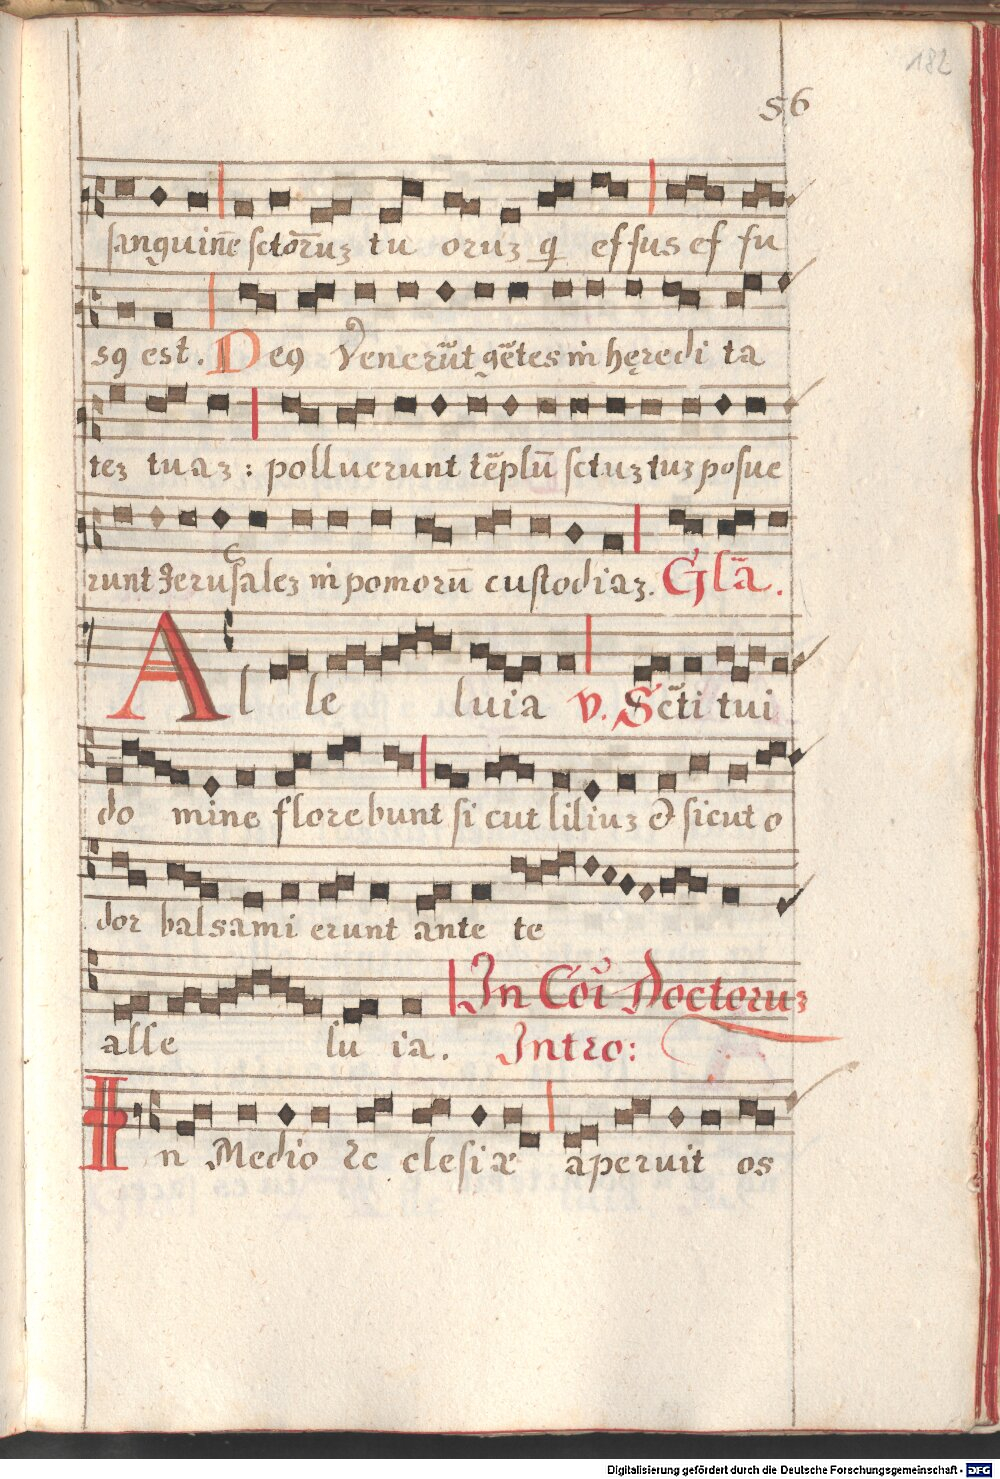 182
56
sanguinē sctōruȝ tu oruȝ q̄ effus ef fu
sꝯ est. Deꝯ Venerūt gētes in hęredi ta
teȝ tuaȝ : polluerunt tēplū sctuȝ tuȝ posue
runt Jerusaleȝ in pomorū custodiaȝ. Glā.
Al le luia v. Sctī tui
do mine florebunt si cut liliuȝ et sicut o
dor balsami erunt ante te
In Cōi Doctoruȝ
alle lu ia. Intro:
In Medio Ec clesiæ aperuit os
Digitalisierung gefördert durch die Deutsche Forschungsgemeinschaft - DFG